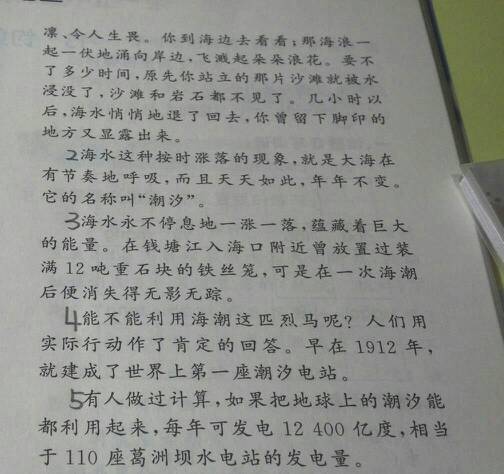 凛、令人生畏。你到海边去看看;那海浪一
起一伏地涌向岸边,飞溅起朵朵浪花。要不
了多少时间,原先你站立的那片沙滩就被水
浸没了,沙滩和岩石都不见了。几小时以
后,海水悄悄地退了回去,你曾留下脚印的
地方又显露出来。
2海水这种按时涨落的现象,就是大海在
有节奏地呼吸,而且天天如此,年年不变。
它的名称叫“潮汐”。
3海水永不停息地一涨一落,蕴藏着巨大
的能量。在钱塘江入海口附近曾放置过装
满 12 吨重石块的铁丝笼,可是在一次海潮
后便消失得无影无踪。
4能不能利用海潮这匹烈马呢?人们用
实际行动作了肯定的回答。早在 1912 年,
就建成了世界上第一座潮汐电站。
5有人做过计算,如果把地球上的潮汐能
都利用起来,每年可发电 12 400 亿度,相当
于 110 座葛洲坝水电站的发电量。